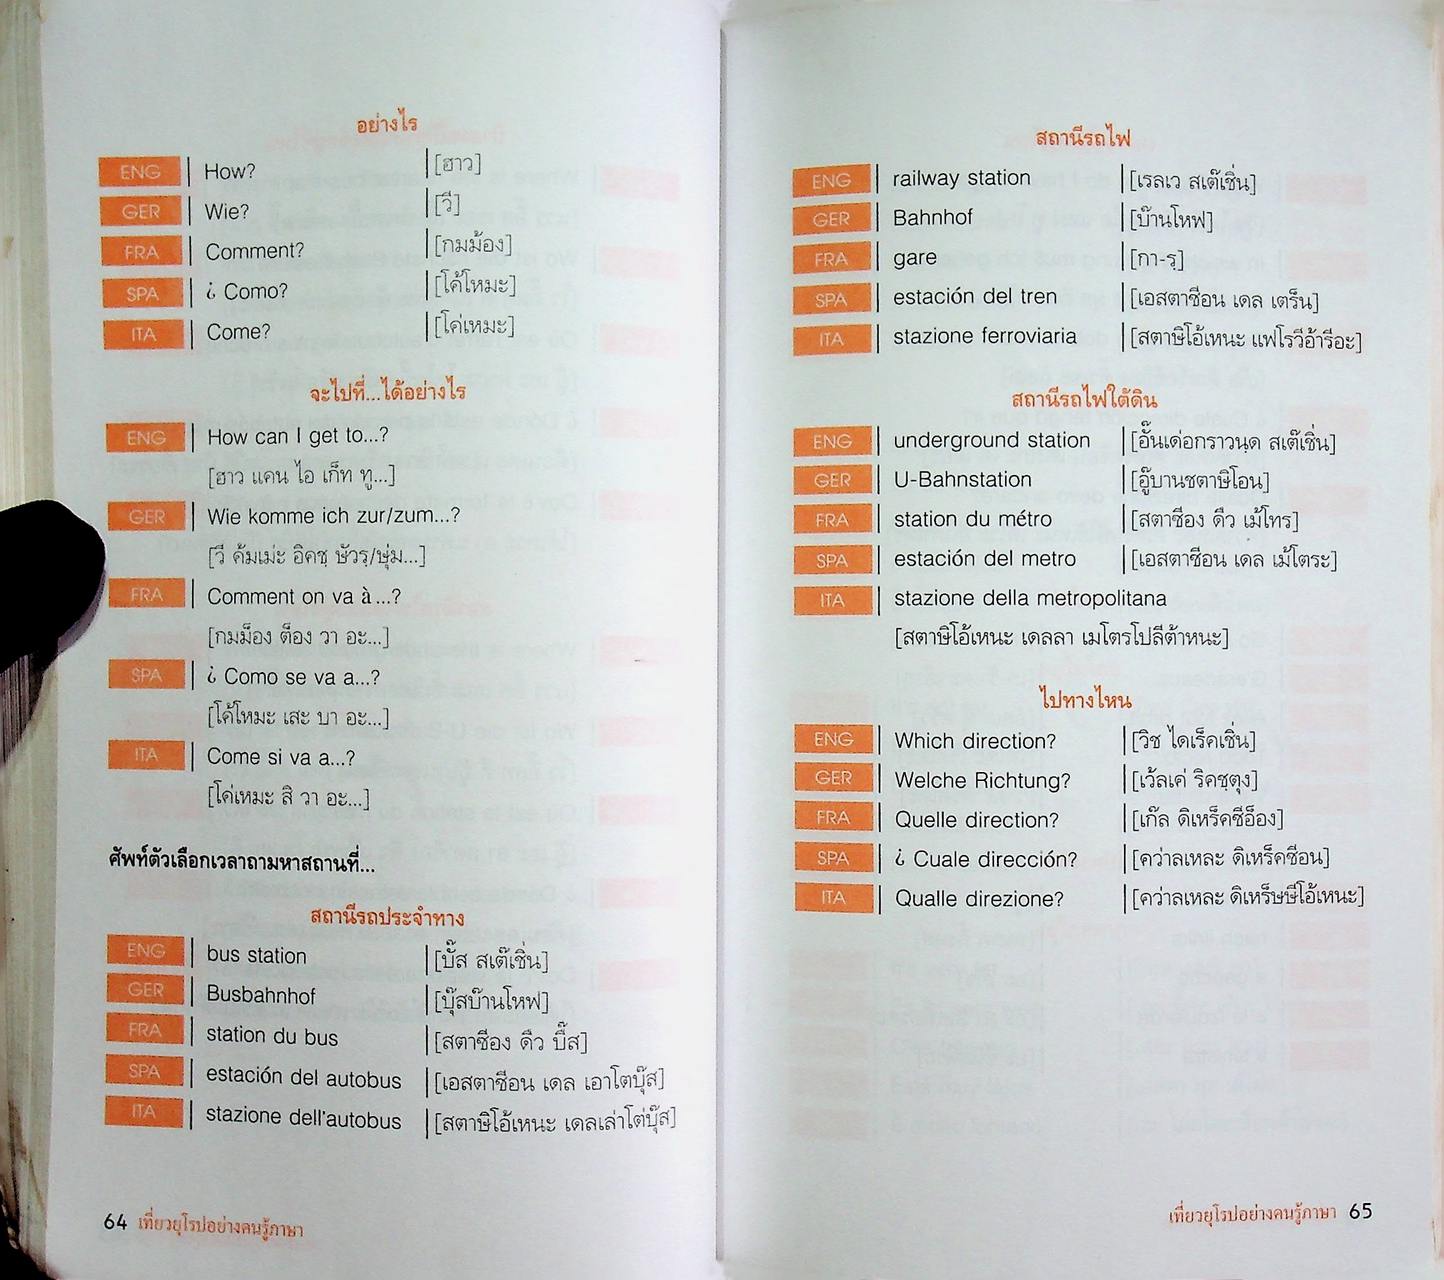 อย่างไร
ENG How? [ฮาว]
GER Wie? [วี]
FRA Comment? [กมม้อง]
SPA ¿ Como? [โค้โหมะ]
ITA Come? [โค่เหมะ]
จะไปที่...ได้อย่างไร
ENG How can I get to...?
[ฮาว แคน ไอ เก็ท ทู...]
GER Wie komme ich zur/zum...?
[วี ค้มเม่ะ อิคชฺ ษัวรฺ/ษุ่ม...]
FRA Comment on va à ...?
[กมม็อง ต็อง วา อะ...]
SPA ¿ Como se va a...?
[โค้โหมะ เสะ บา อะ...]
ITA Come si va a...?
[โค่เหมะ สิ วา อะ...]
ศัพท์ตัวเลือกเวลาถามหาสถานที่...
สถานีรถประจำทาง
ENG bus station [บั๊ส สเต๊เชิ่น]
GER Busbahnhof [บุ๊สบ๊านโหฟ]
FRA station du bus [สตาซีอง ดืว บื๊ส]
SPA estación del autobus [เอสตาซีอน เดล เอาโตบุ๊ส]
ITA stazione dell'autobus [สตาษิโอ้เหนะ เดลเล่าโต่บุ๊ส]
64 เที่ยวยุโรปอย่างคนรู้ภาษา
สถานีรถไฟ
ENG railway station [เรลเว สเต๊เชิ่น]
GER Bahnhof [บ๊านโหฟ]
FRA gare [กา-รฺ]
SPA estación del tren [เอสตาซีอน เดล เตร็น]
ITA stazione ferroviaria [สตาษิโอ้เหนะ แฟโรวีอ้ารีอะ]
สถานีรถไฟใต้ดิน
ENG underground station [อั๊นเด่อกราวนฺด สเต๊เชิ่น]
GER U-Bahnstation [อู๊บานชตาษิโอน]
FRA station du métro [สตาซีอง ดืว เม้โทร]
SPA estación del metro [เอสตาซีอน เดล เม้โตระ]
ITA stazione della metropolitana
[สตาษิโอ้เหนะ เดลลา เมโตรโปลีต้าหนะ]
ไปทางไหน
ENG Which direction? [วิช ไดเร็คเชิ่น]
GER Welche Richtung? [เว้ลเค่ ริคชฺตุง]
FRA Quelle direction? [เก๊ล ดิเหร็คซีอ็อง]
SPA ¿ Cuale dirección? [คว่าลเหละ ดิเหร็คซีอน]
ITA Qualle direzione? [คว่าลเหละ ดิเหร็ษษีโอ้เหนะ]
เที่ยวยุโรปอย่างคนรู้ภาษา 65